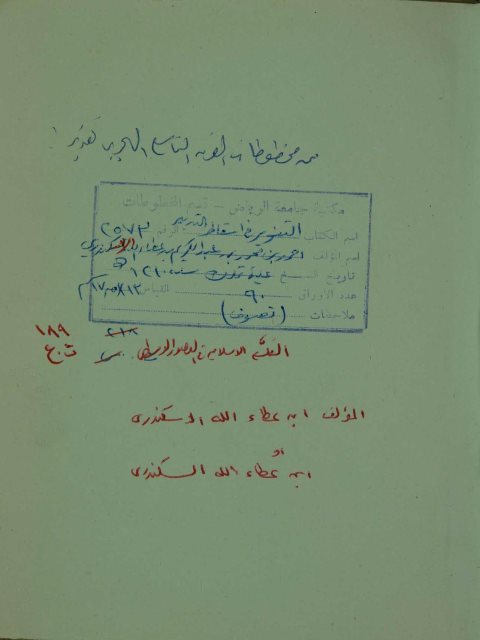 من مخطوطات القرن التاسع الهجري تقديراً
مكتبة جامعة الرياض - قسم المخطوطات
اسم الكتاب التنوير في اسقاط التدبير الرقم ٢٥٧٣
اسم المؤلف احمد بن محمد بن عبد الكريم بن عطاء الله الاسكندري
تاريخ النسخ سنة ١٢١٠ هـ
عدد الأوراق ٩٠ القياس
ملاحظات (تصوف)
١٨٩
٢١٨
الاسلامية في العصور الوسطى
المؤلف ابن عطاء الله الاسكندرى
أو
ابن عطاء الله السكندرى